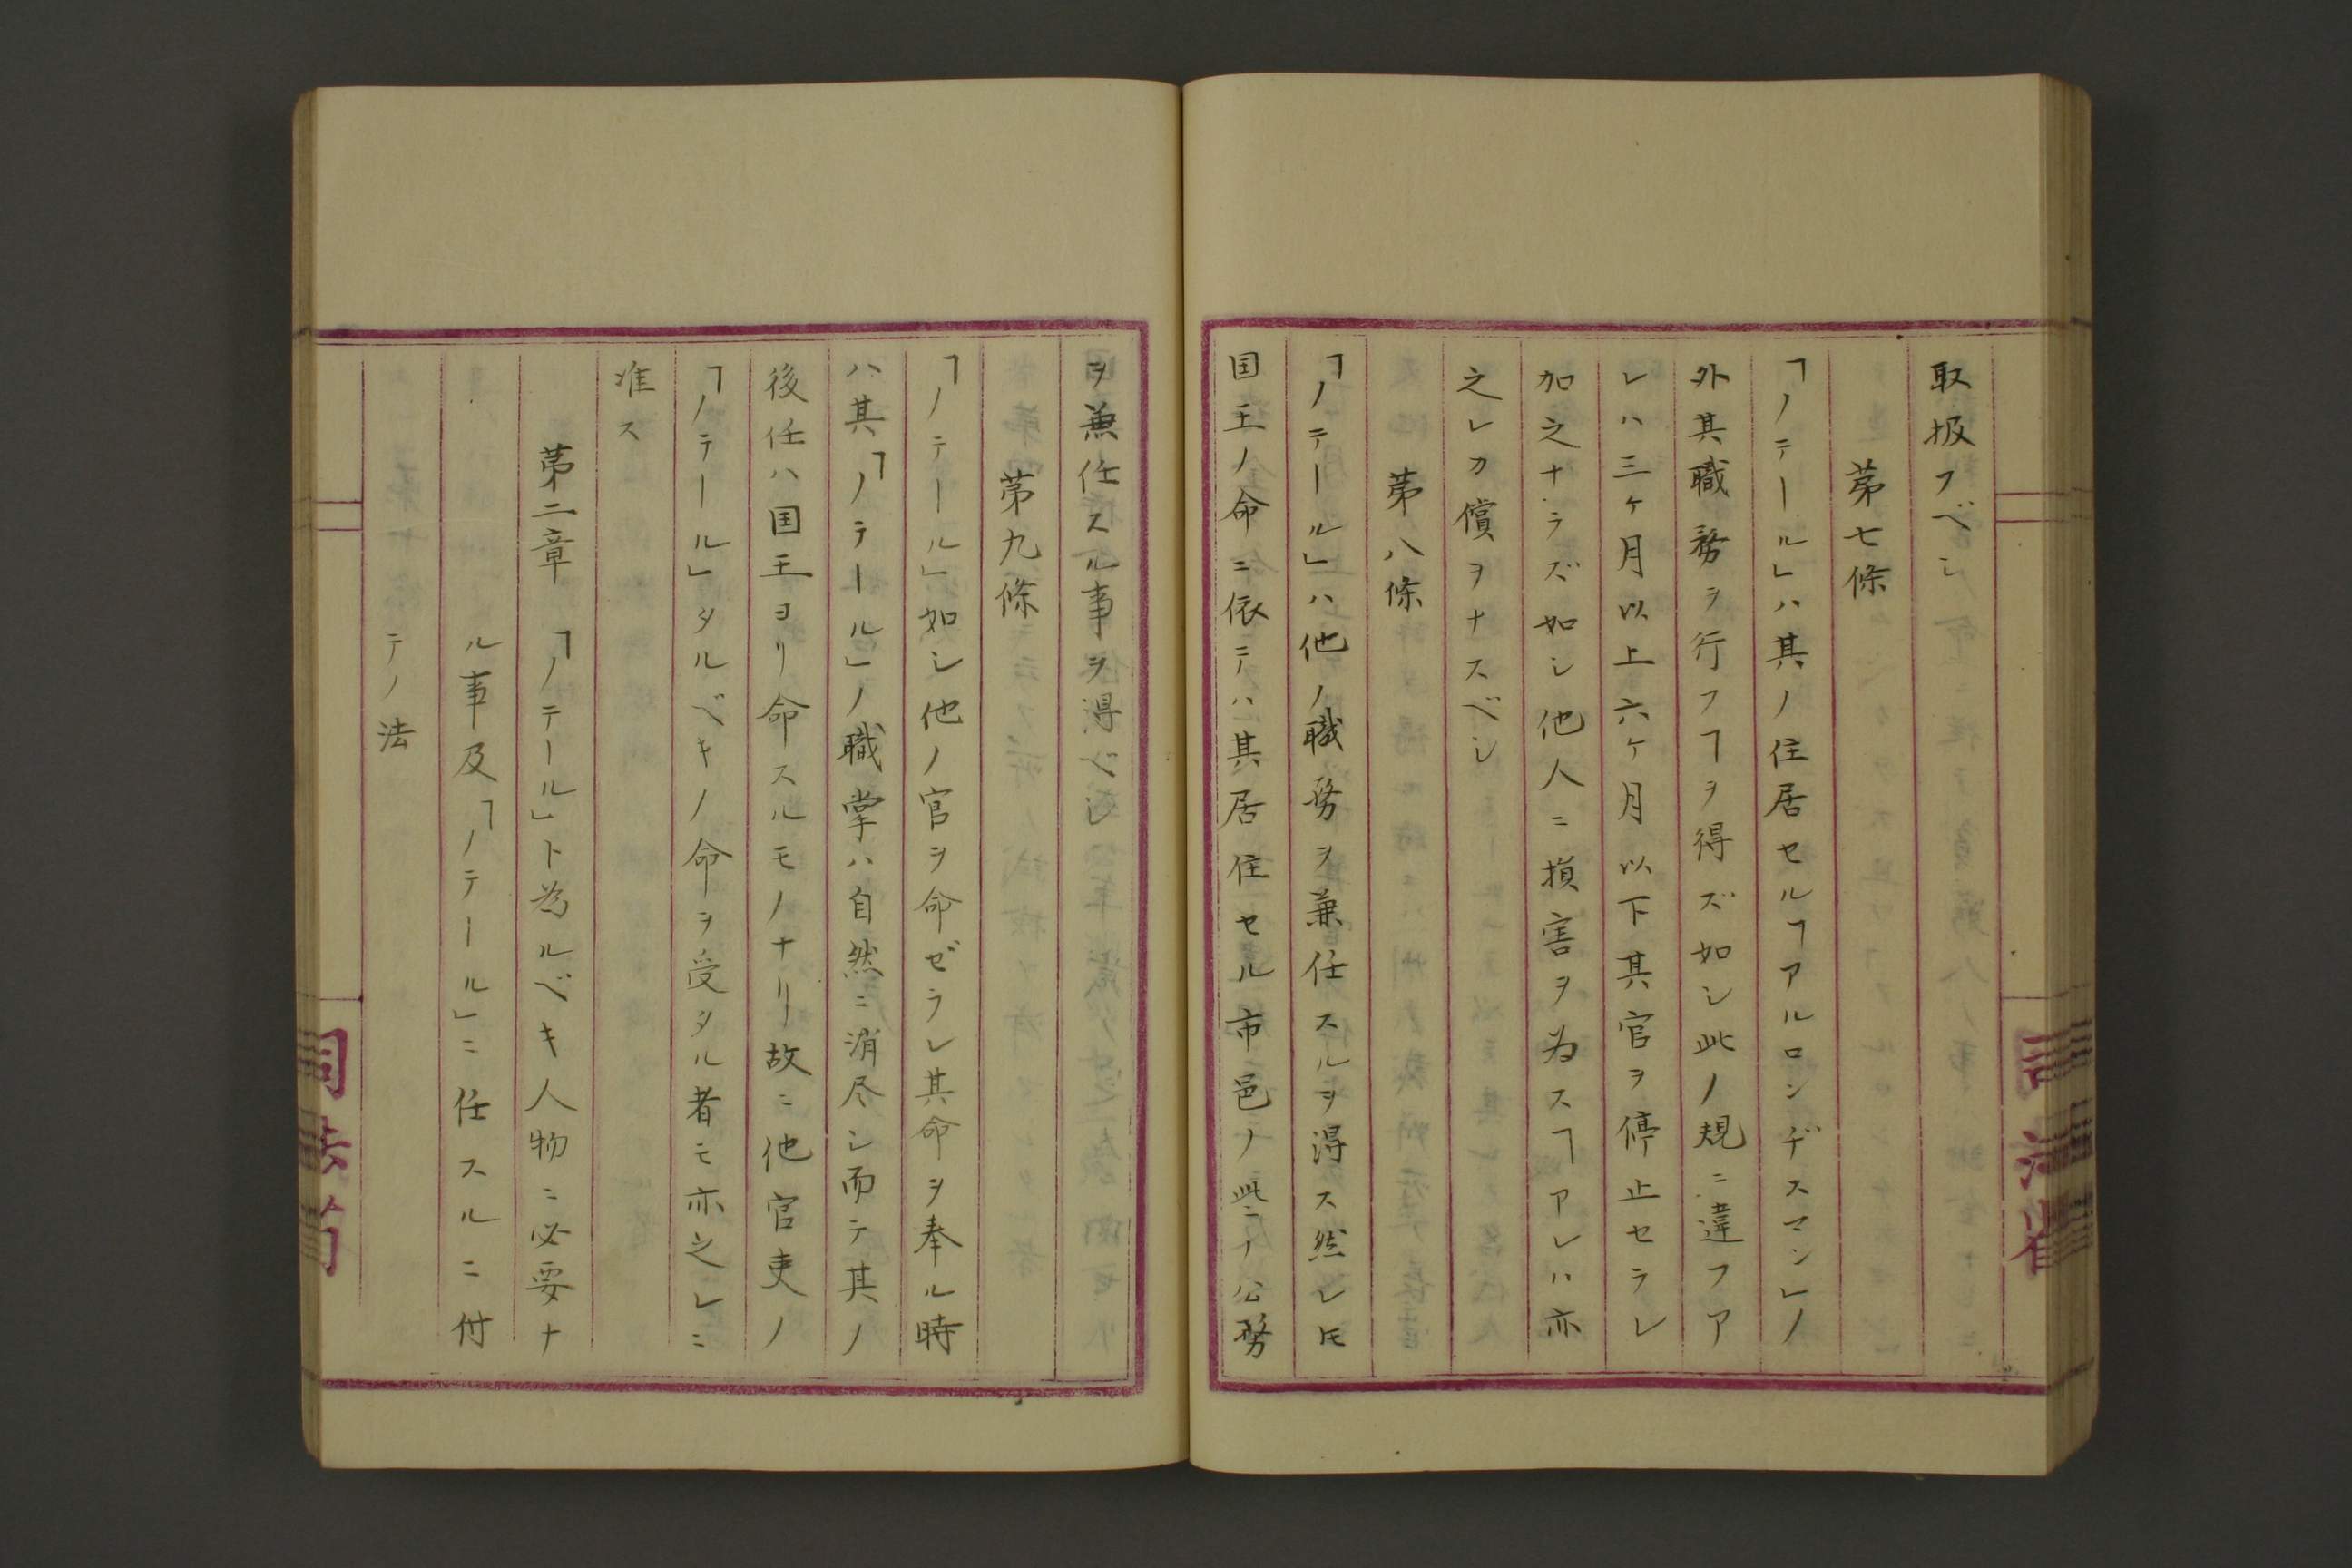 取扱フベシ
第七條
「ノテール」ハ其ノ住居セルヿアルロンヂスマン」ノ
外其職務ヲ行フヿヲ得ズ如シ此ノ規ニ違フア
レハ三ケ月以上六ケ月以下其官ヲ停止セラレ
加之ナラズ如シ他人ニ損害ヲ為スヿアレハ亦
之レカ償ヲナスベシ
第八條
「ノテール」ハ他ノ職務ヲ兼任スルヲ得ス然レ𪜈
国王ノ命ニ依テハ其居住セル市邑ノ此ノ公務
ヲ兼任スル事ヲ得ベシ
第九條
「ノテール」如シ他ノ官ヲ命ゼラレ其命ヲ奉ル時
ハ其「ノテール」ノ職掌ハ自然ニ消尽シ而テ其ノ
後任ハ国王ヨリ命スルモノナリ故ニ他官吏ノ
「ノテール」タルベキノ命ヲ受タル者モ亦之レニ
准ス
第二章 「ノテール」ト為ルベキ人物ニ必要ナ
ル事及「ノテール」ニ任スルニ付
テノ法
司法省